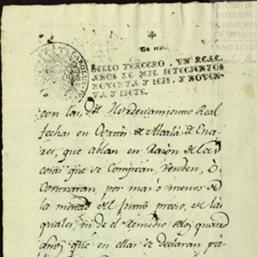 Un real.
SELLO TERCERO, UN REAL,
AÑOS DE MIL SETECIENTOS
NOVENTA Y SEIS, Y NOVEN-
TA Y SIETE.
con las del Hordenamiento Real
fechas en Cortes de Alcalá de Ena-
res, que ablan en Razon de las
cosas que se Compran, Venden, ó
Contratan, por mas o menos de
la mitad del justo precio, de las
quales, ni de el Remedio de los quatro
años que en ellas se declaran pa-